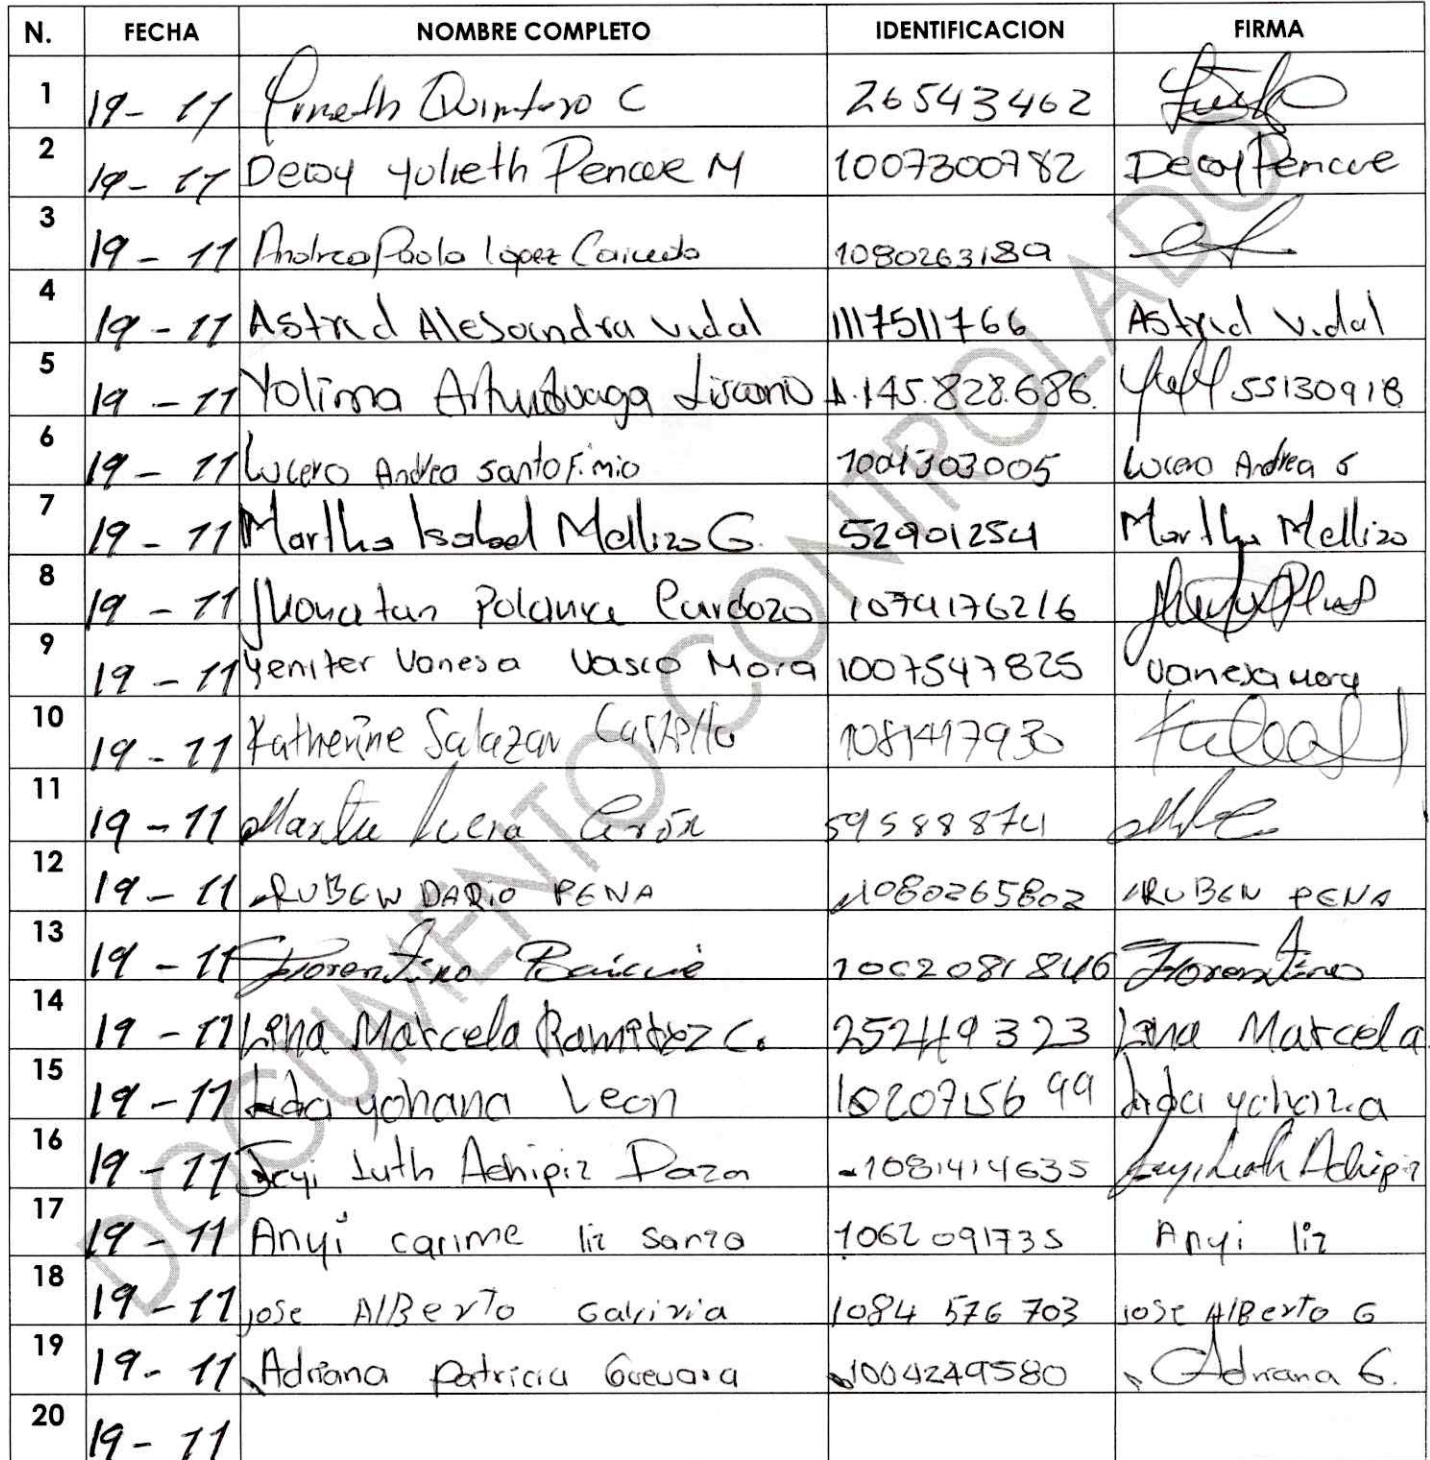 N. FECHA NOMBRE COMPLETO IDENTIFICACION FIRMA
1 19-11 Quintero C 26543462
2 19-11 Deisy Yulieth Pencue M 1007300782 Deisy Pencue
3 19-11 Andrea Paola Lopez Caicedo 1080263189
4 19-11 Astrid Alesandra Vidal 1117511766 Astrid Vidal
5 19-11 Yolima Liscano 1.145.828.686. 55130918
6 19-11 Lucero Andrea Santofimio 1004303005 Lucero Andrea S
7 19-11 Martha Isabel Mellizo G. 52901254 Martha Mellizo
8 19-11 Jhonatan Polanía Cardozo 1074176216
9 19-11 Yenifer Vanesa Vasco Mora 1007547825 Vanesa Mora
10 19-11 Katherine Salazar Castillo 1081417930
11 19-11 Martha Lucia Girón 59588874
12 19-11 RUBEN DARIO PENA 1080265802 RUBEN PENA
13 19-11 Florentino 1002081846 Florentino
14 19-11 Lina Marcela Ramirez C. 25249323 Lina Marcela
15 19-11 Lida yohana Leon 1020715699 Lida yohana
16 19-11 Luth Achipiz Daza 1081414635 Achipiz
17 19-11 Anyi carime liz Sanza 1062091735 Anyi liz
18 19-11 jose AlBerto Galvizia 1084 576 703 jose AlBerto G
19 19-11 Adriana patricia Guevara 1004249580 Adriana G.
20 19-11
DOCUMENTO CONTROLADO